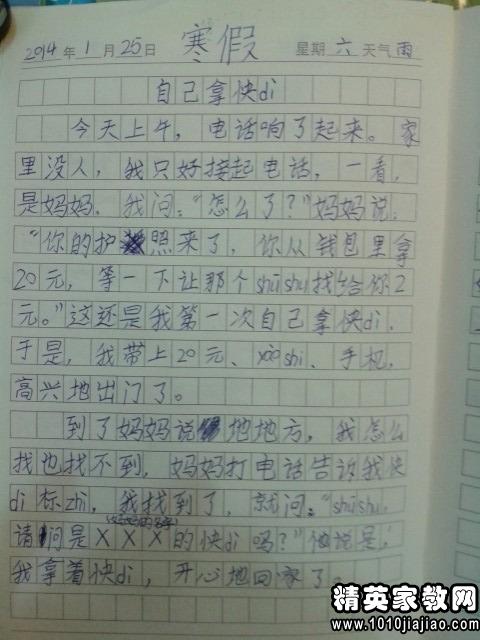 2014年1月25日 寒假 星期六天气雨
自己拿快di
今天上午，电话响了起来。家
里没人，我只好接起电话，一看，
是妈妈。我问：“怎么了？”妈妈说：
“你的护照来了，你从钱包里拿
20元，等一下让那个shūshu找给你2
元。”这还是我第一次自己拿快di，
于是，我带上20元、yàoshi、手机，
高兴地出门了。
到了妈妈说地地方，我怎么
找也找不到，妈妈打电话告诉我快
di标zhì，我找到了，就问：“shūshu，
请问是XXX的快di吗？”他说是，
我拿着快di，开心地回家了。
精英家教网
www.1010jiajiao.com